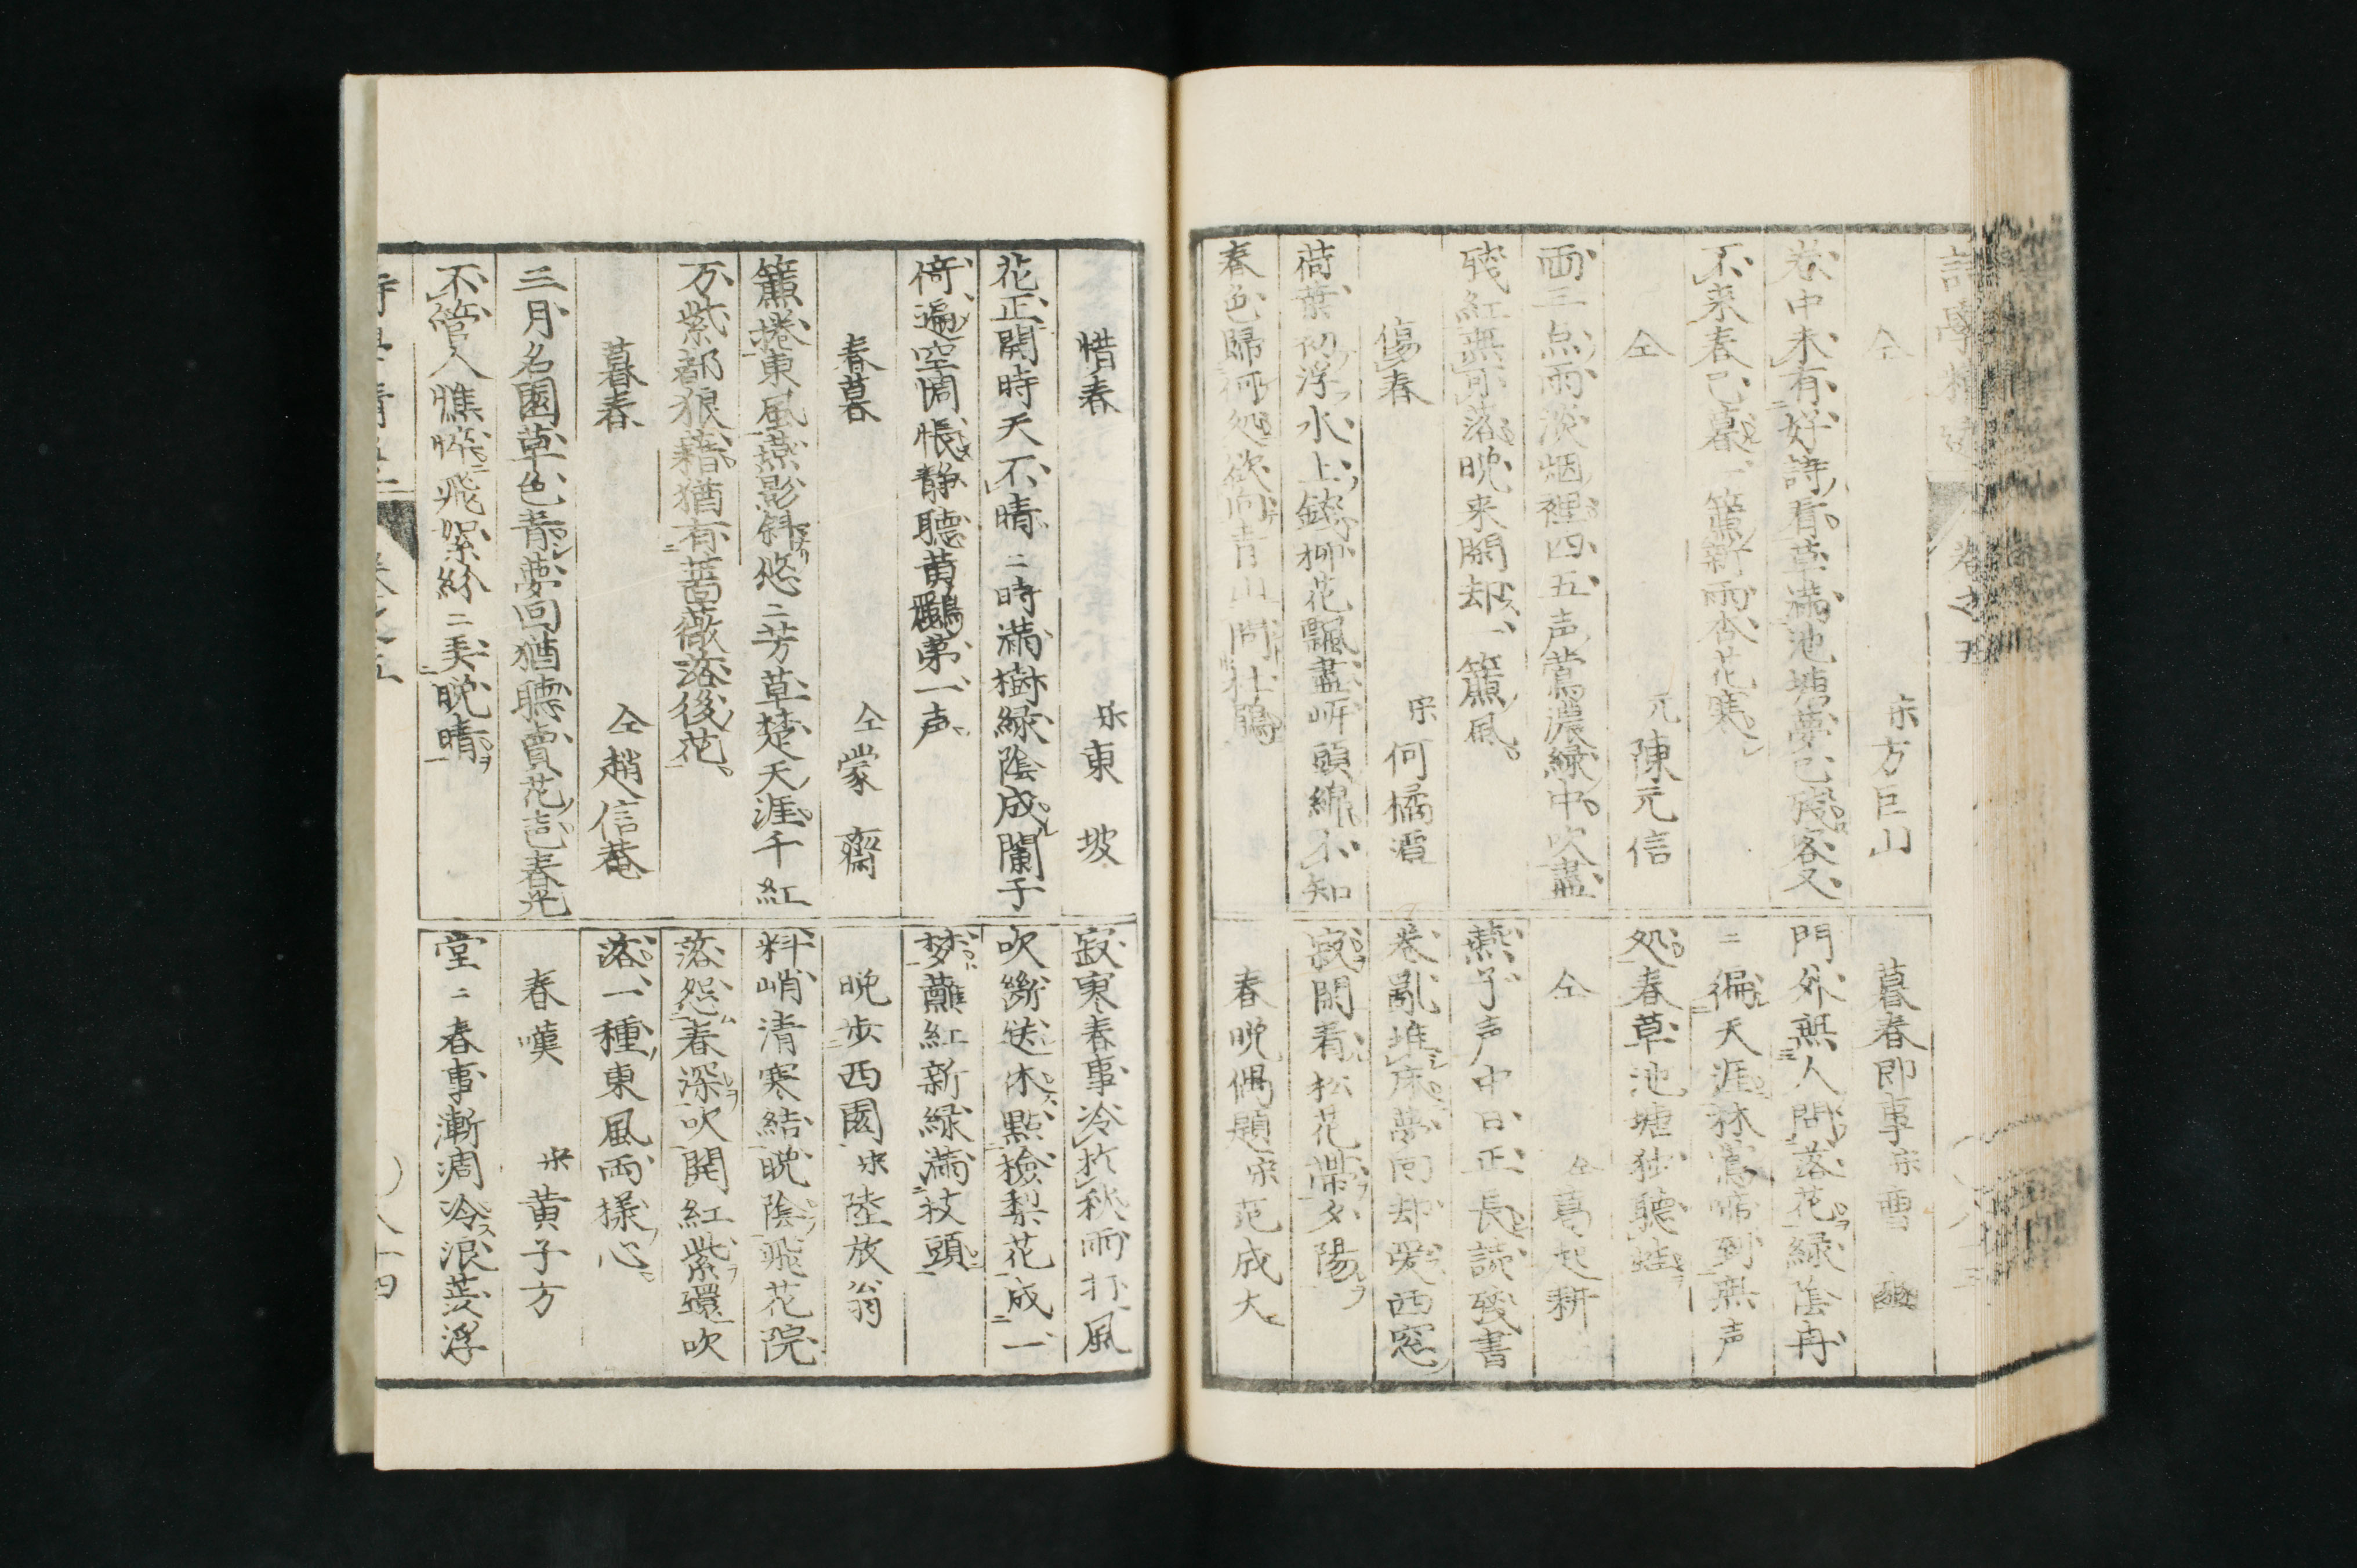 仝　宋方巨山
巻中未有好詩看草満池塘夢已残客又
不来春已暮一簾新雨杏花寒
仝　元陳元信
両三点雨淡烟裡四五声鶯濃緑中吹盡
残紅無可落晩来閑却一簾風
傷春　宋何橘潭
荷葉初浮水上錢柳花飄盡岍頭綿不知
春色歸何処欲向青山問杜鵑
暮春即事　宋曹
門外無人問落花緑陰冉
〻徧天涯林鶯啼到無声
処春草池塘独聽蛙
仝　仝葛起耕
燕子声中日正長読残書
巻亂堆床夢回却愛西窓
寂閑看松花㗖夕陽
春晩偶題　宋范成大
惜春　宋東坡
花正開時天不晴〻時満樹緑陰成闌干
倚遍空惆悵静聽黄鸝苐一声
春暮　仝蒙齋
簾捲東風燕影斜悠〻芳草楚天涯千紅
万紫都狼藉猶有薔薇落後花
暮春　仝趙信菴
三月名園草色青夢回猶聽賣花声春光
不管人憔悴飛絮紛〻美晩晴
寂寒春事冷於秋雨打風
吹断送休點檢梨花成一
梦蘸紅新緑満枝頭
晩歩西園　宋陸放翁
料峭清寒結晩陰飛花院
落怨春深吹開紅紫還吹
落一種東風両様心
春嘆　宋黄子方
堂〻春事漸凋冷浪蕊浮
巻之五
八十四